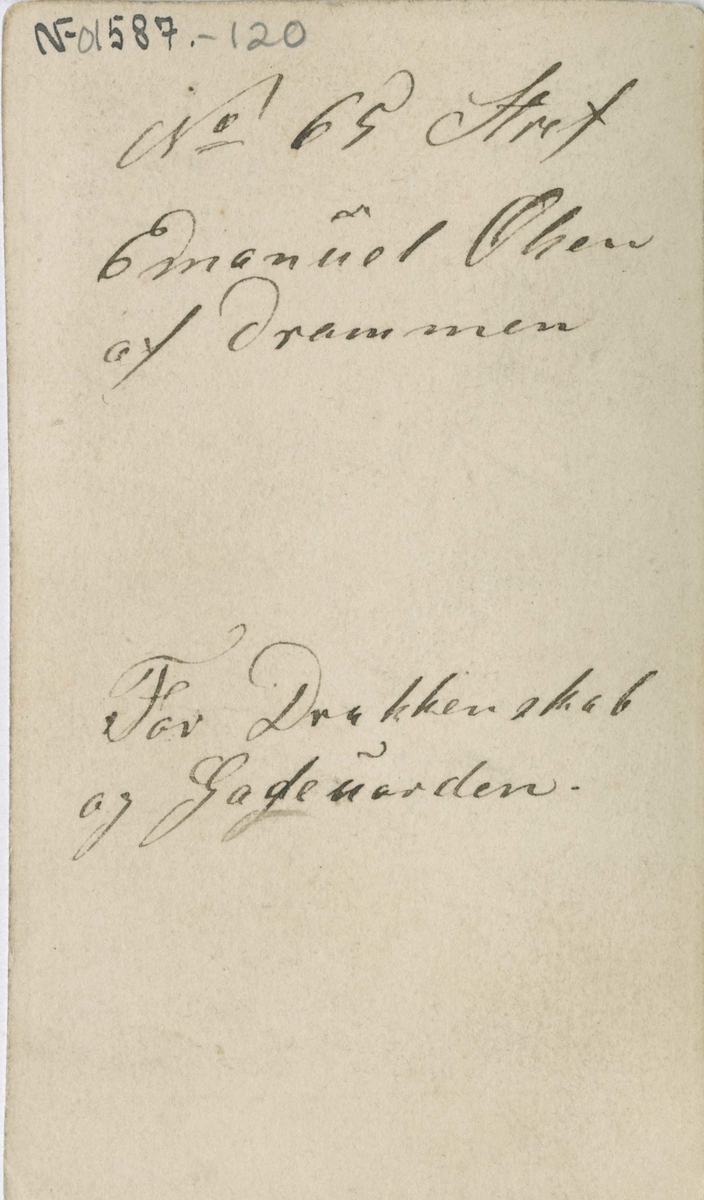 N-01587.-120
No 65 Straf
Emanuel Olsen
af Drammen
For Drukkenskab
og Gadeuorden.